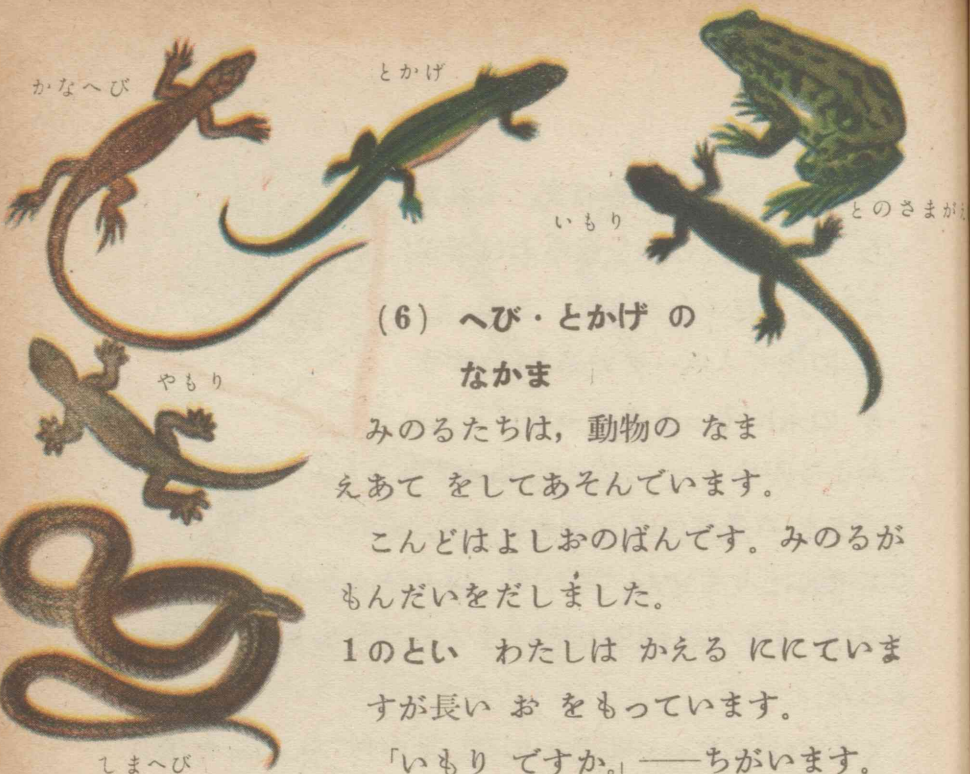 かなへび
とかげ
とのさまが
いもり
(6) へび・とかげ の
なかま
やもり
みのるたちは，動物の なま
えあて をしてあそんでいます。
こんどはよしおのばんです。みのるが
もんだいをだしました。
1のとい わたしは かえる ににていま
すが長い お をもっています。
「いもり ですか。」――ちがいます。
しまへび